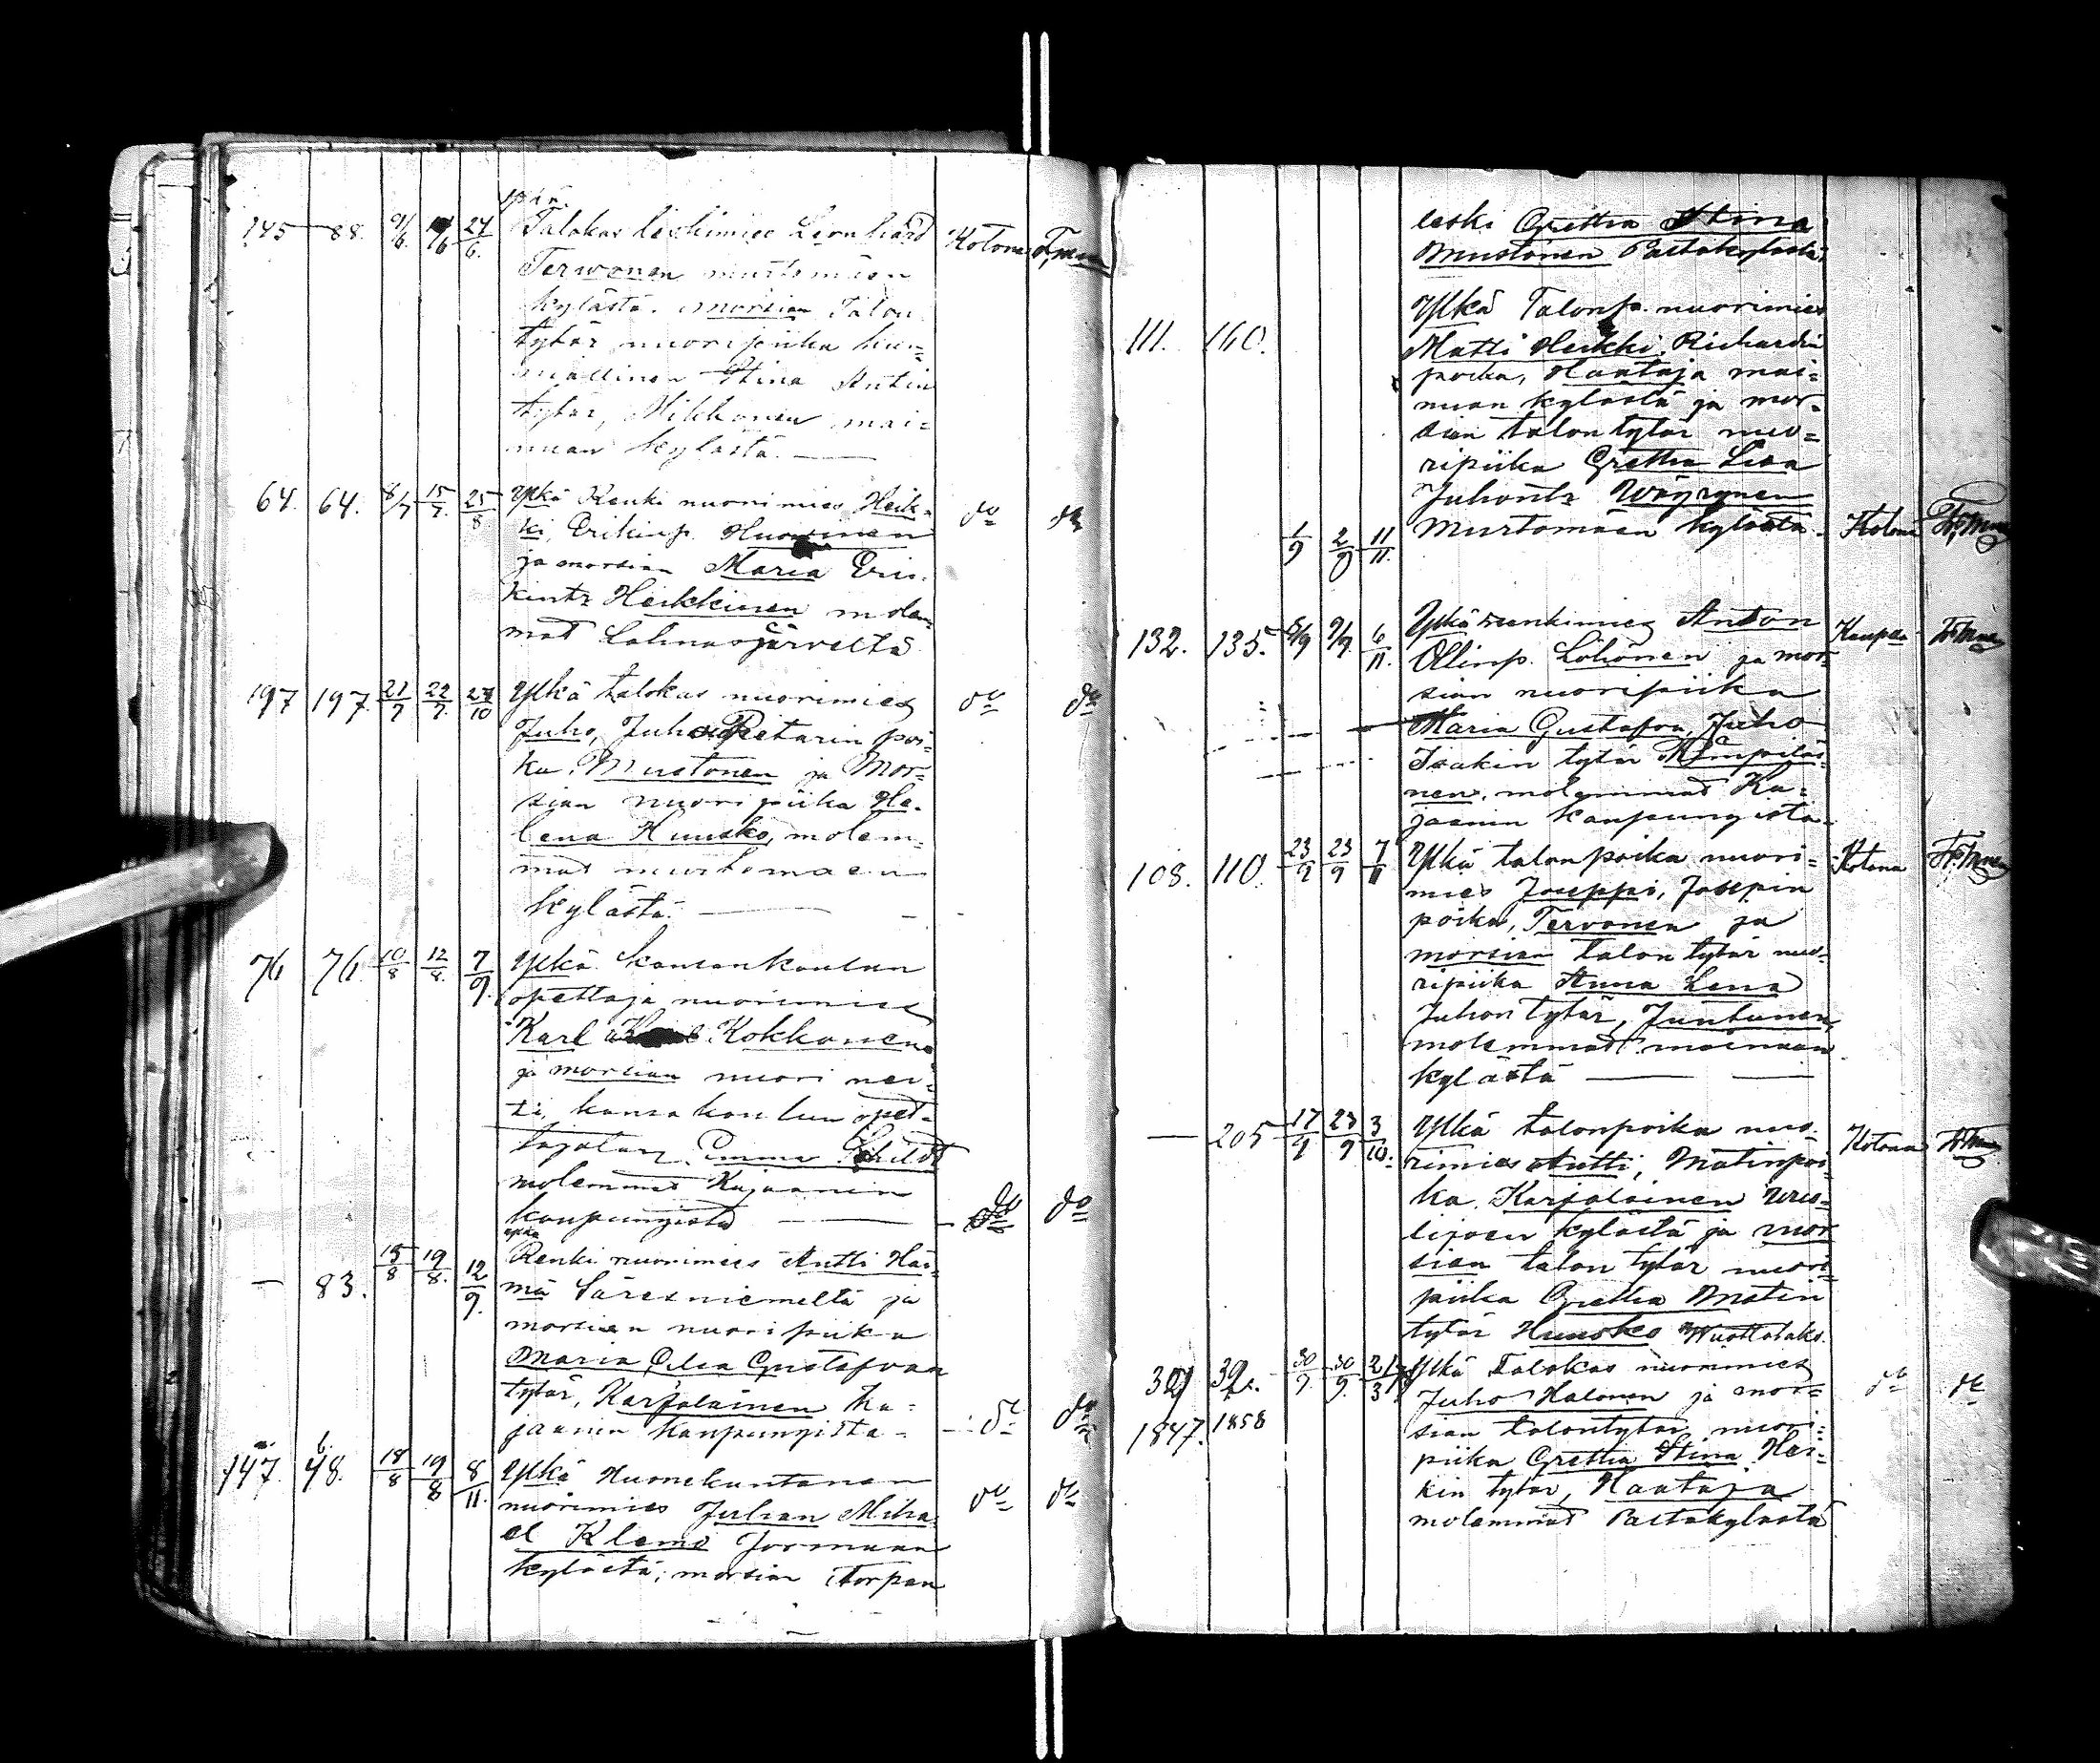 ylkä
145 88. 24/6. Talokas leskimies Leonhard Kotona
Terwonen murtomäen
kylästä. morsian Talon
tytär nuoripiika kun=
niallinen Stina Antin
tytär, Mikkonen mai=
nuan kylästä. —
64. 64. 8/7 15/7. 25/8 Ylkä Renki nuorimies Heik- do do
ki, Erikinp. Huovinen
ja morsian Maria Eri-
kintr Heikkinen molem-
mat Lahnasjärveltä
197 197. 21/7 22/7. 27/10 Ylkä talokas nuorimies do do
Juho, Juho Pietarin poi-
ka, Mustonen ja Mor-
sian nuoripiika He-
lena Huusko, molem-
mat murtomäen
kylästä. —
76 76. 10/8 12/8. 7/9. Ylkä kansankoulun
opettaja nuorimies
Karl Kokkonen
ja morsian nuori nei-
ti, kansakoulun opet-
tajatar, Emma
molemmat Kajaanin
kaupungista — do do
ylkä
— 83. 15/8 19/8. 12/9. Renki nuorimies Antti Här-
mä Säresniemeltä ja
morsian nuoripiika
Maria Elsa Gustafvan
tytär, Karjalainen Ka-
jaanin kaupungista - do do
a. b.
147. 48. 18/8 19/8 8/11. Ylkä Huonekuntanen do do
nuorimies Juhan Mika-
el Klemi Jormuan
kylästä, morsian Torpan
leski Gretha Stina
Mustonen Paltakylästä
111. 140. Ylkä Talonp. nuorimies
Matti Heikki Richardin
poika, Hautaja mai=
nuan kylästä ja mor-
sian talontytär nuo=
ripiika Gretha Lisa
Juhontr Wäyrynen
1/9 2/9 11/11. Murtomaan kylästä. Kotona
132. 135. 5/9 9/9. 6/11. Ylkä renkimies Anton Kaupu
Ollinp. Löhönen ja mor-
sian nuoripiika
Maria Gustafva, Juho
Isakin tytär Kämpiläi-
nen, molemmat Ka-
jaanin kaupungista
108. 110. 23/9 23/9 7/11 Ylkä talonpoika nuori= Kotona
mies Jouppi, Josepin
poika, Tervonen ja
morsian talon tytär nuo-
ripiika Anna Lena
Juhon tytär, Juntunen,
molemmat mainuan
kylästä —
— 205 17/9 23/9 3/10. Ylkä talonpoika nuo- Kotona
rimies Antti, Matinpoi-
ka, Karjalainen Wuo-
lijoen kylästä ja mor
sian talon tytär nuori-
piika Gretha Matin
tytär Huusko Wuottolaks.
39. 30/9. 30/9. Ylkä Talokas nuorimies do do
1847. 1858 Juho Halonen ja mor=
sian talontytär, nuori=
piika Gretha Stina Hei=
kin tytär, Hautaja
molemmat Paltakylästä